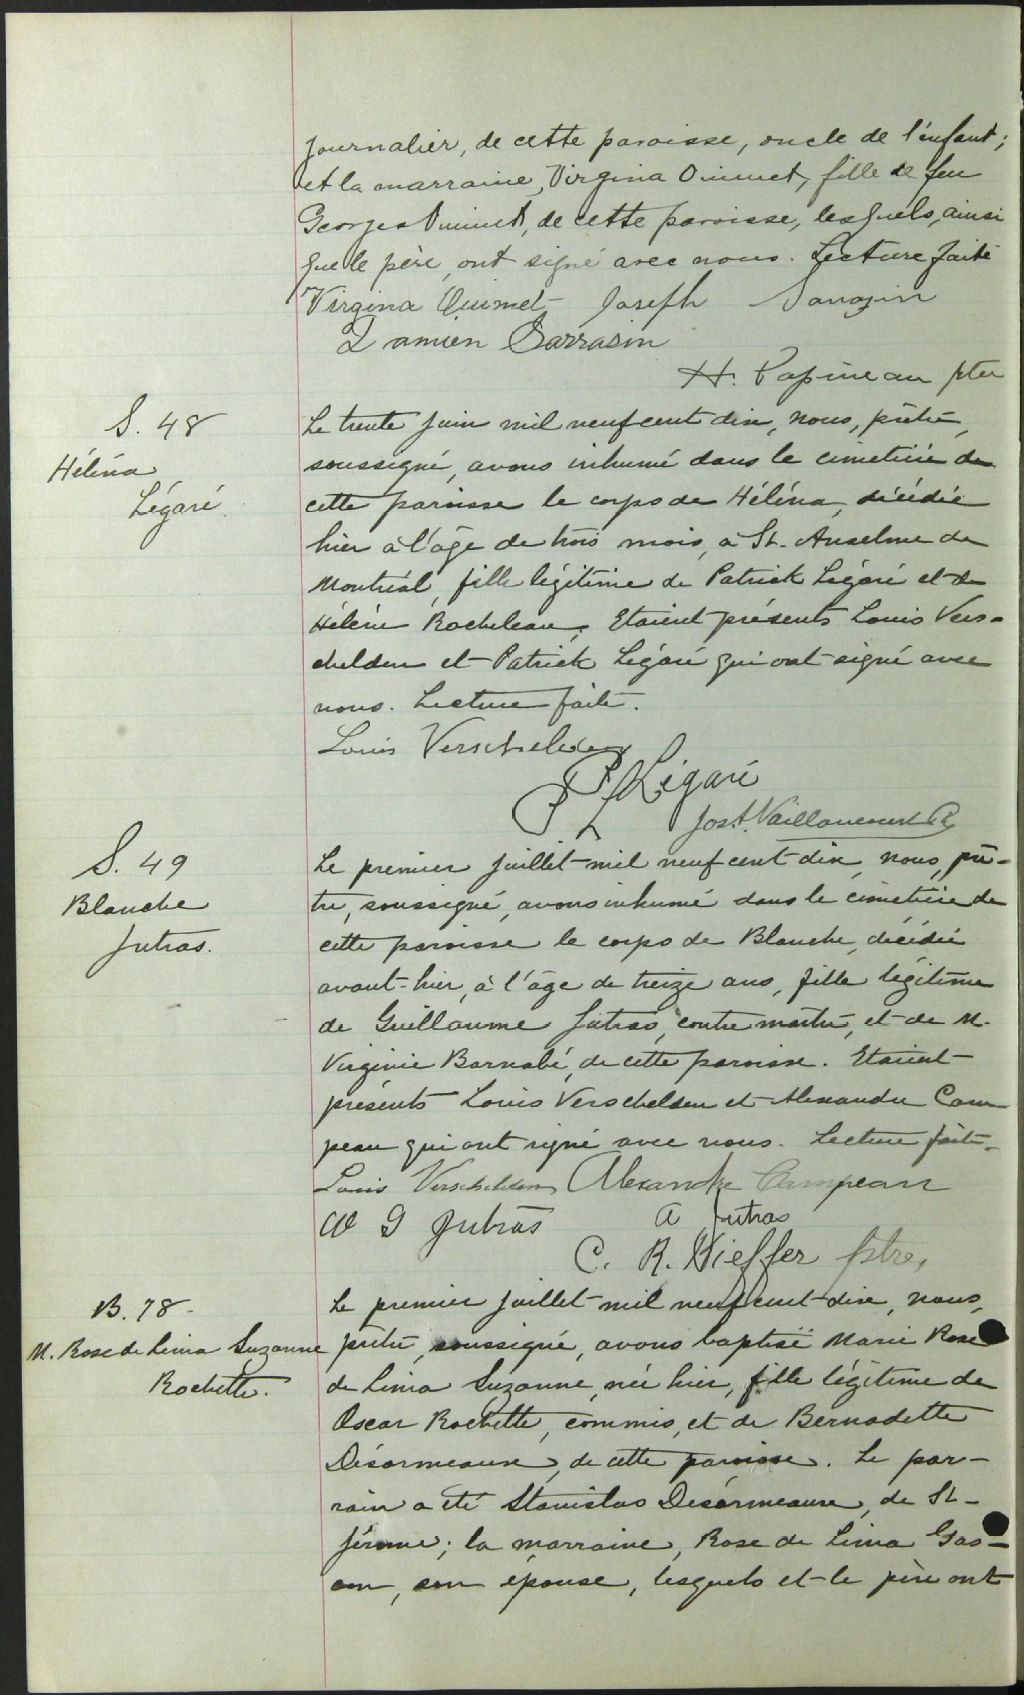 journalier, de cette paroisse, oncle de l'enfant;
et la marraine, Virgina Ouimet, fille de feu
Georges Ouimet, de cette paroisse, lesquels, ainsi
que le père, ont signé avec nous. Lecture faite
Virgina Ouimet Joseph Sarrazin
Damien Sarrasin
H. Papineau ptre
S. 48
Héléna
Légaré.
Le trente juin mil neuf cent dix, nous, prêtre,
soussigné, avons inhumé dans le cimetière de
cette paroisse le corps de Héléna, décédée
hier à l'âge de trois mois, à St. Anselme de
Montréal, fille légitime de Patrick Légaré et de
Hélène Rocheleau. Etaient présents Louis Vers-
chelden et Patrick Légaré qui ont signé avec
nous. Lecture faite.
Louis Verschelden
P Légaré
Jos. A. Vaillancourt
S. 49
Blanche
Jutras.
Le premier juillet mil neuf cent dix, nous, prê-
tre, soussigné, avons inhumé dans le cimetière de
cette paroisse le corps de Blanche, décédée
avant-hier, à l'âge de treize ans, fille légitime
de Guillaume Jutras, contremaître, et de M.
Virginie Barnabé, de cette paroisse. Etaient
présents Louis Verschelden et Alexandre Cam-
peau qui ont signé avec nous. Lecture faite.
Louis Verschelden Alexandre Campeau
W G Jutras A Jutras
C. R. Kieffer ptre,
B. 78-
M. Rose de Lima Suzanne
Rochette.
Le premier juillet mil neuf cent dix, nous,
prêtre, soussigné, avons baptisé Marie Rose
de Lima Suzanne, née hier, fille légitime de
Oscar Rochette, commis, et de Bernadette
Désormeaux, de cette paroisse. Le par-
rain a été Stanislas Desormeaux, de St-
Jérome; la marraine, Rose de Lima Gas-
con, son épouse, lesquels et le père ont